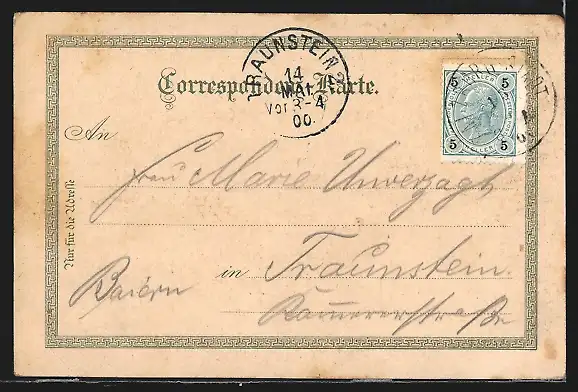 Correspondenz-Karte.
TRAUNSTEIN
14
MAI.
Vor 3-4
00.
5 5
5 5
An
Frau Marie Unverzagt
in Traunstein.
Baiern
Kammererstraße
Nur für die Adresse